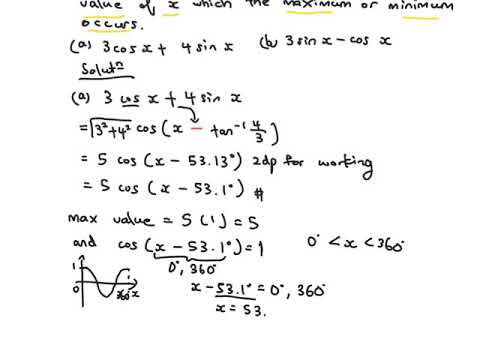 value of x which the maximum or minimum
occurs.
(a) 3 cos x + 4 sin x (b) 3 sin x - cos x
Solutⁿ
(a) 3 cos x + 4 sin x
= √3²+4² cos (x - tan⁻¹ 4/3)
= 5 cos (x - 53.13°) 2dp for working
= 5 cos (x - 53.1°) #
max value = 5 (1) = 5
and cos (x - 53.1°) = 1 0° < x < 360°
0°, 360°
1
0
360° x
x - 53.1° = 0°, 360°
x = 53.